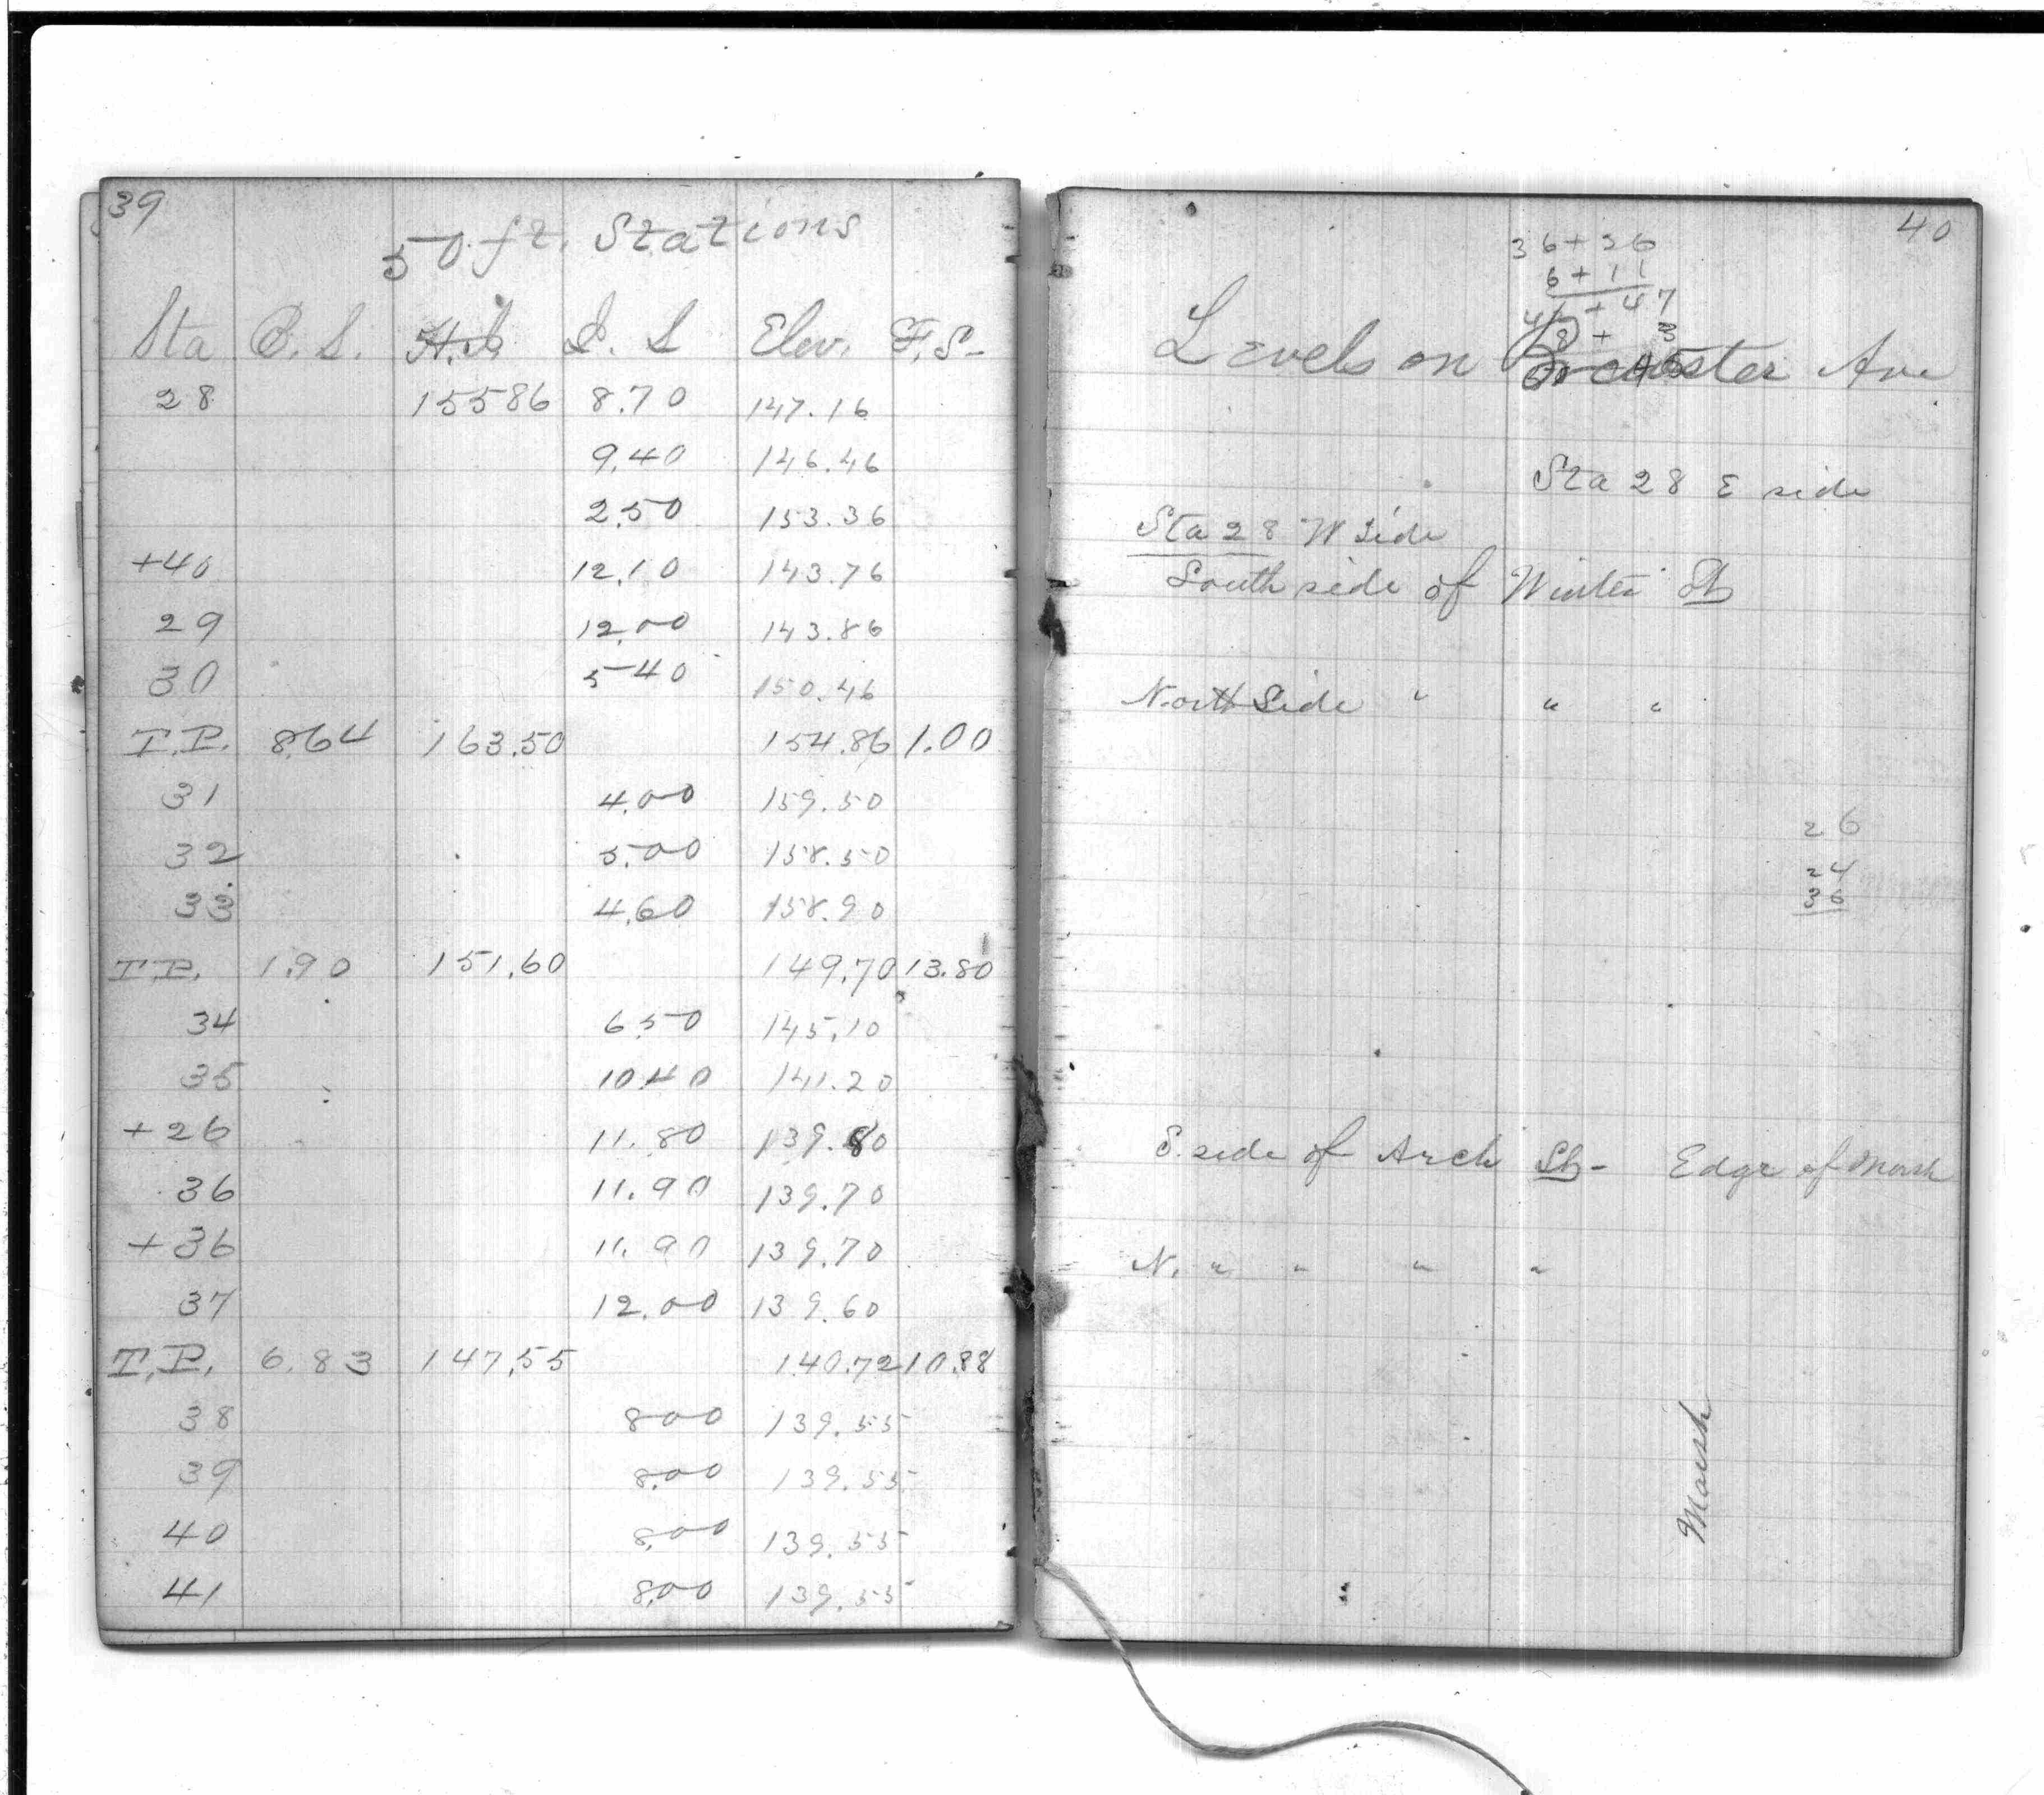 39
50 ft. Stations
Sta B.S. H.I. I.S Elev. F.S-
28 155 86 8.70 147.16
9.40 146.46
2.50 153.36
+40 12.10 143.76
29 12.00 143.86
30 5 40 150.46
T.P. 8.64 163.50 154.86 1.00
31 4.00 159.50
32 5.00 158.50
33 4.60 158.90
T.P. 1.90 151.60 149.70 13.80
34 6.50 145.10
35 10.40 141.20
+26 11.80 139.80
36 11.90 139.70
+36 11.90 139.70
37 12.00 139.60
T.P. 6.83 147.55 140.72 10.88
38 8 00 139.55
39 8.00 139.55
40 8.00 139.55
41 8.00 139.55
40
36+36
6+11
+47
8+
Levels on Ave
Sta 28 E side
Sta 28 W Side
South side of Winter St
North Side " " "
26
24
36
E. side of Arch St- Edge of Marsh
N. " " " "
Marsh